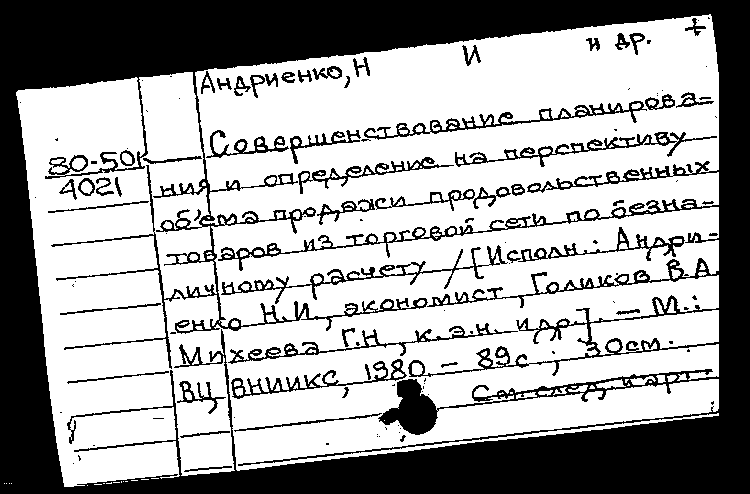 Андриенко, Н И и др. +
80-50к Совершенствование планирова=
4021 ния и определение на перспективу
объема продажи продовольственных
товаров из торговой сети по безна=
личному расчету / [Исполн.: Андри-
енко Н.И., экономист, Голиков В.А.
Михеева Г.Н., к.э.н. и др.]. — М.:
ВЦ ВНИИКС, 1980. - 89с ; 30см.
См. след. карт.